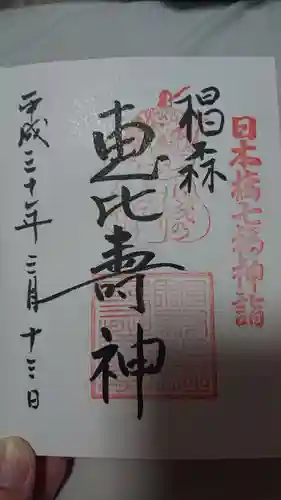 日本橋七福神詣
椙森
恵比寿神
平成三十年三月十三日